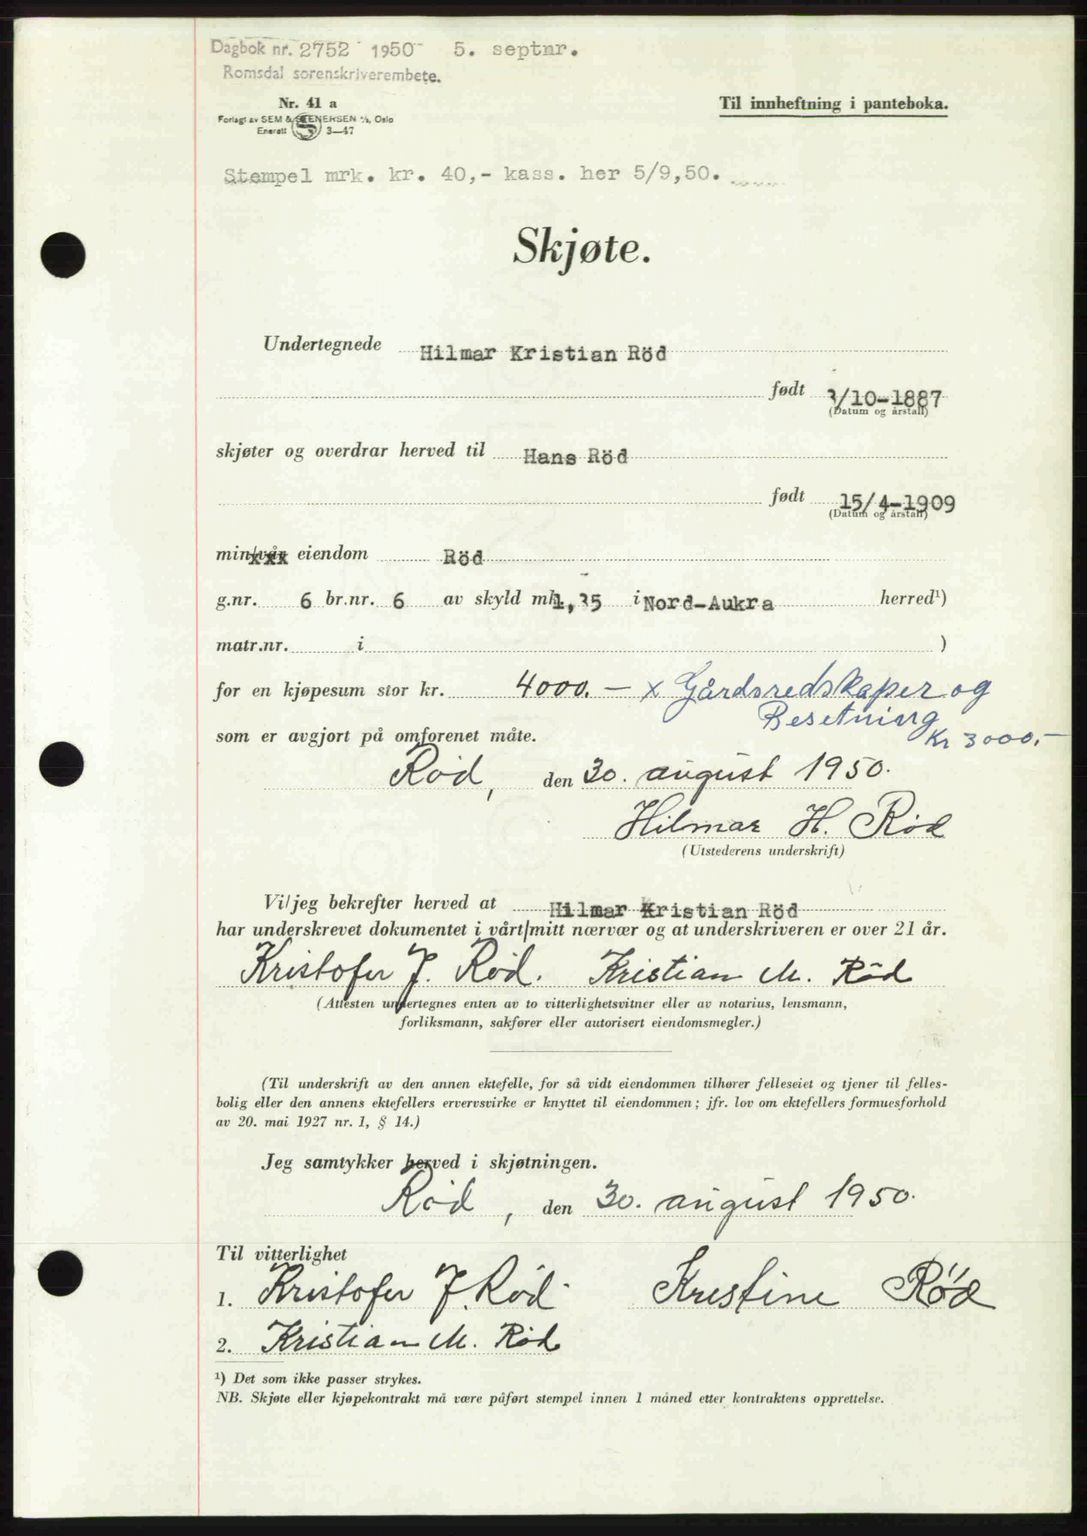 Dagbok nr. 2752 1950 5. septnr.
Romsdal sorenskriverembete.
Nr. 41 a
Til innheftning i panteboka.
Forlagt av SEM & STENERSEN A/S, Oslo
Enerett 3—47
Stempel mrk. kr. 40,- kass. her 5/9,50.
Skjøte.
Undertegnede Hilmar Kristian Röd
født 3/10-1887
(Datum og årstall)
skjøter og overdrar herved til Hans Röd
født 15/4-1909
(Datum og årstall)
min/vår eiendom Röd
g.nr. 6 br.nr. 6 av skyld mk. 1,35 i Nord-Aukra herred¹)
matr.nr. i )
for en kjøpesum stor kr. 4000.— x Gårdsredskaper og
Besetning
som er avgjort på omforenet måte. Kr 3000,-
Rød, den 30. august 1950.
Hilmar H. Rød
(Utstederens underskrift)
Vi/jeg bekrefter herved at Hilmar Kristian Röd
har underskrevet dokumentet i vårt/mitt nærvær og at underskriveren er over 21 år.
Kristofer J. Rød. Kristian M. Rød
(Attesten undertegnes enten av to vitterlighetsvitner eller av notarius, lensmann,
forliksmann, sakfører eller autorisert eiendomsmegler.)
(Til underskrift av den annen ektefelle, for så vidt eiendommen tilhører felleseiet og tjener til felles-
bolig eller den annens ektefellers ervervsvirke er knyttet til eiendommen; jfr. lov om ektefellers formuesforhold
av 20. mai 1927 nr. 1, § 14.)
Jeg samtykker herved i skjøtningen.
Rød, den 30. august 1950.
Til vitterlighet
1. Kristofer J. Rød. Kristine Röd
2. Kristian M. Rød
¹) Det som ikke passer strykes.
NB. Skjøte eller kjøpekontrakt må være påført stempel innen 1 måned etter kontraktens opprettelse.